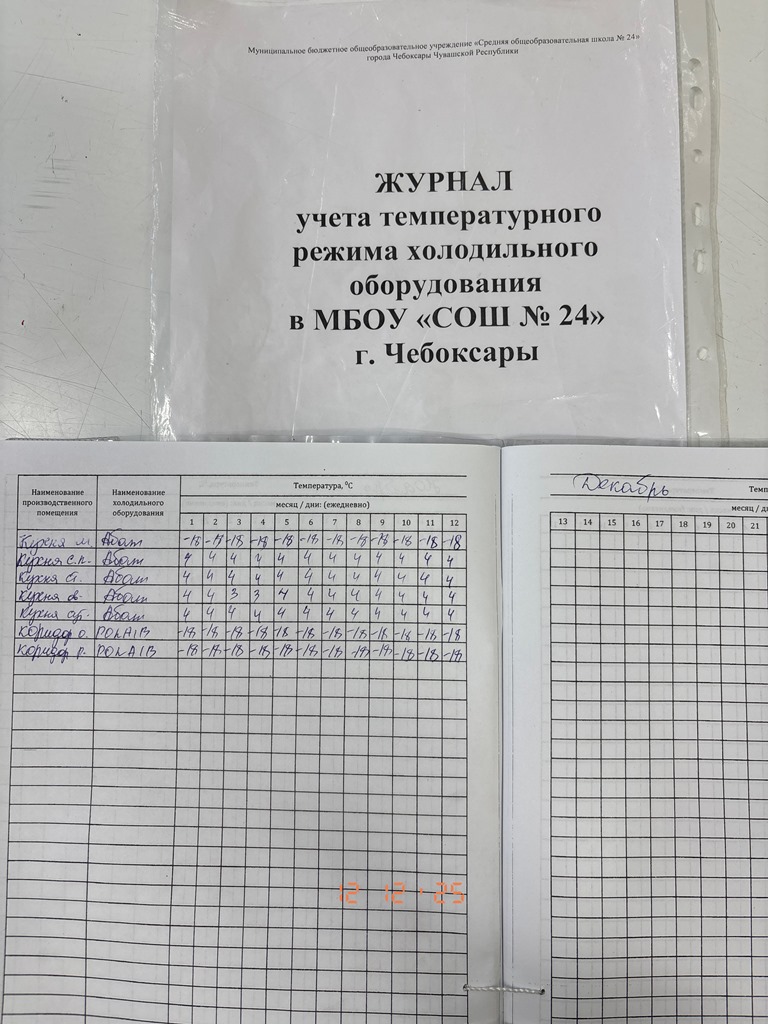 Муниципальное бюджетное общеобразовательное учреждение «Средняя общеобразовательная школа № 24»
города Чебоксары Чувашской Республики
ЖУРНАЛ
учета температурного
режима холодильного
оборудования
в МБОУ «СОШ № 24»
г. Чебоксары
Наименование производственного помещения
Наименование холодильного оборудования
Температура, ⁰С
месяц / дни: (ежедневно)
1 2 3 4 5 6 7 8 9 10 11 12
Кухня м. Абат -18 -18 -18 -18 -18 -18 -18 -18 -18 -18 -18 -18
Кухня с.п. Абат 4 4 4 4 4 4 4 4 4 4 4
Кухня ст. Абат 4 4 4 4 4 4 4 4 4 4 4 4
Кухня Абат 4 4 3 3 4 4 4 4 4 4 4 4
Кухня Абат 4 4 4 4 4 4 4 4 4 4 4 4
Коридор о. POLAIR -18 -18 -18 -18 -18 -18 -18 -18 -18 -18 -18 -18
Коридор р. POLAIR -18 -18 -18 -18 -18 -18 -18 -18 -18 -18 -18 -18
Декабрь
Темп
месяц / д
13 14 15 16 17 18 19 20 21
12 12 '25